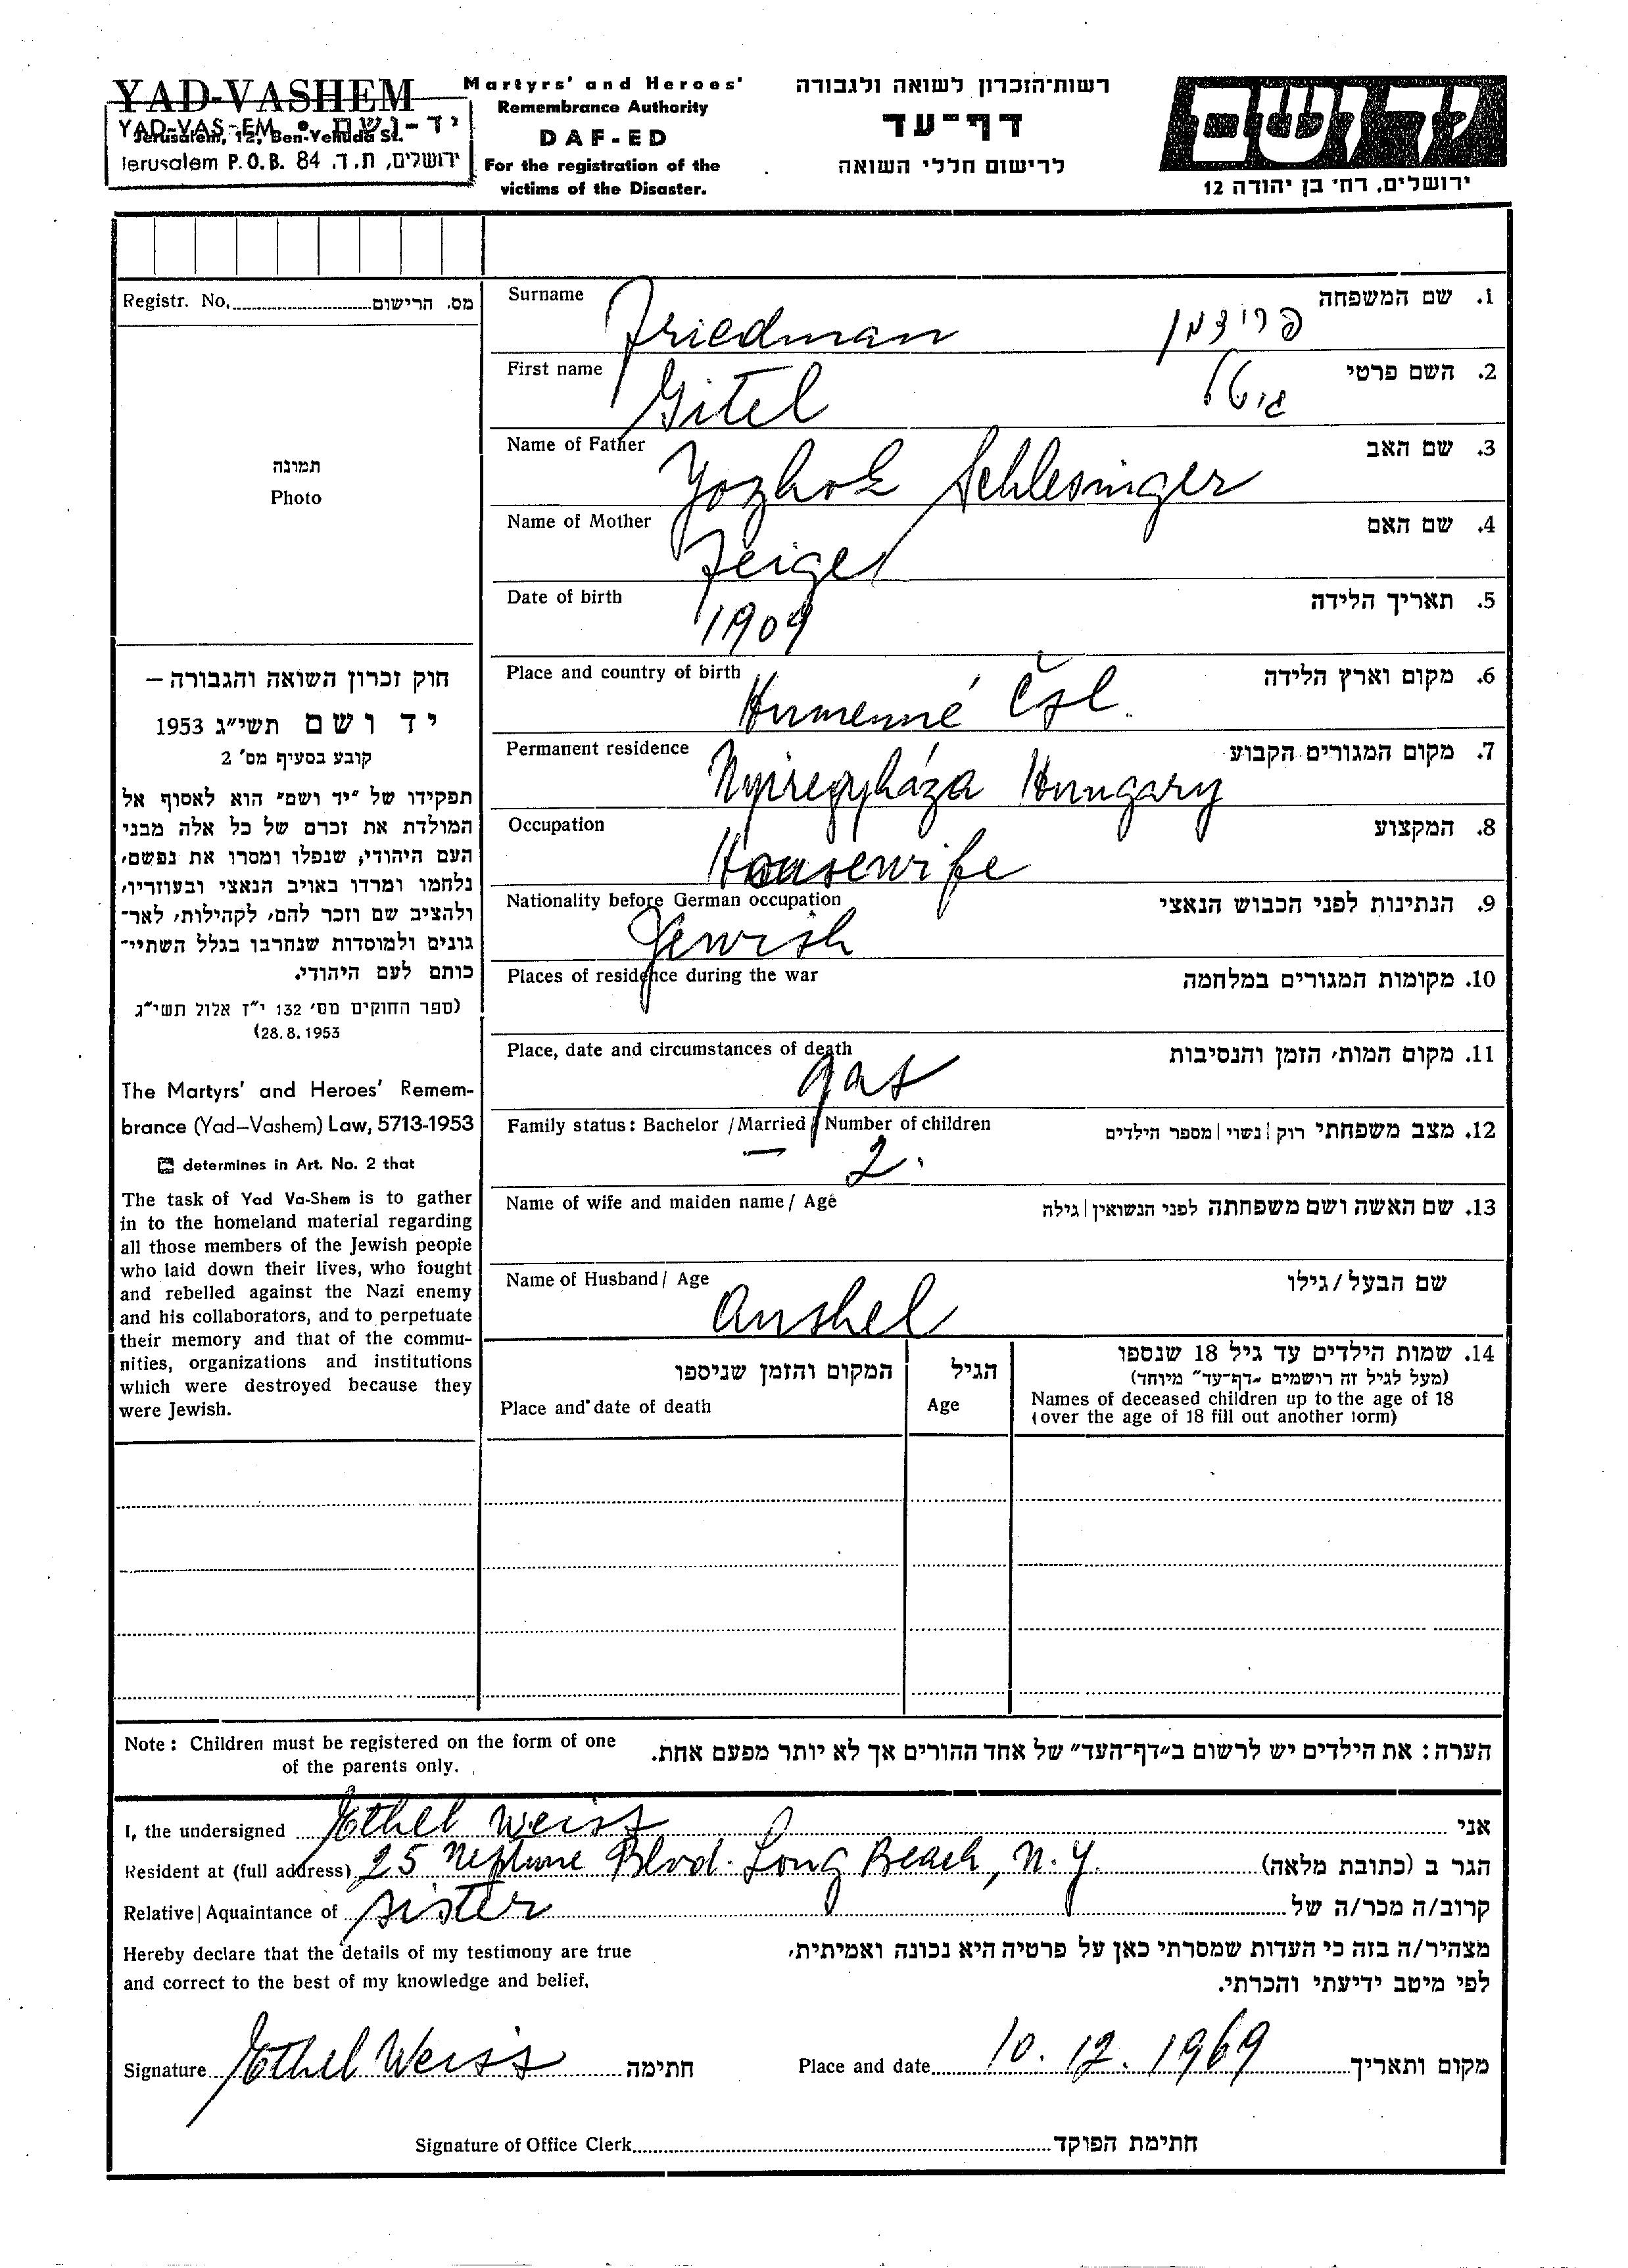 YAD-VASHEM
Jerusalem, 12, Ben-Yehuda St.
יד-ושם • YAD-VAS-EM
Jerusalem P.O.B. 84 ירושלים, ת.ד.
Martyrs' and Heroes'
Remembrance Authority
DAF-ED
For the registration of the
victims of the Disaster.
רשות־הזכרון לשואה ולגבורה
דף־עד
לרישום חללי השואה
יד ושם
ירושלים, רח׳ בן יהודה 12
Registr. No. מס. הרישום
תמונה
Photo
חוק זכרון השואה והגבורה —
יד ושם תשי״ג 1953
קובע בסעיף מס׳ 2
תפקידו של ״יד ושם״ הוא לאסוף אל
המולדת את זכרם של כל אלה מבני
העם היהודי, שנפלו ומסרו את נפשם,
נלחמו ומרדו באויב הנאצי ובעוזריו,
ולהציב שם וזכר להם, לקהילות, לאר־
גונים ולמוסדות שנחרבו בגלל השתיי־
כותם לעם היהודי.
(ספר החוקים מס׳ 132 י״ז אלול תשי״ג
28.8.1953)
The Martyrs' and Heroes' Remem-
brance (Yad–Vashem) Law, 5713-1953
determines in Art. No. 2 that
The task of Yad Va-Shem is to gather
in to the homeland material regarding
all those members of the Jewish people
who laid down their lives, who fought
and rebelled against the Nazi enemy
and his collaborators, and to perpetuate
their memory and that of the commu-
nities, organizations and institutions
which were destroyed because they
were Jewish.
Surname Friedman פרידמן 1. שם המשפחה
First name Gitel גיטל 2. השם פרטי
Name of Father Yozhok Schlesinger 3. שם האב
Name of Mother Feigel 4. שם האם
Date of birth 1909 5. תאריך הלידה
Place and country of birth Humenné Čsl. 6. מקום וארץ הלידה
Permanent residence Nyiregyháza Hungary 7. מקום המגורים הקבוע
Occupation Housewife 8. המקצוע
Nationality before German occupation Jewish 9. הנתינות לפני הכבוש הנאצי
Places of residence during the war 10. מקומות המגורים במלחמה
Place, date and circumstances of death gas 11. מקום המות, הזמן והנסיבות
Family status: Bachelor / Married / Number of children 12. מצב משפחתי רוק | נשוי | מספר הילדים
— 2.
Name of wife and maiden name / Age 13. שם האשה ושם משפחתה לפני הנשואין | גילה
Name of Husband / Age Anshel שם הבעל / גילו
המקום והזמן שניספו
Place and date of death
הגיל
Age
14. שמות הילדים עד גיל 18 שנספו
(מעל לגיל זה רושמים ״דף־עד״ מיוחד)
Names of deceased children up to the age of 18
(over the age of 18 fill out another form)
Note: Children must be registered on the form of one
of the parents only.
הערה: את הילדים יש לרשום ב״דף־העד״ של אחד ההורים אך לא יותר מפעם אחת.
I, the undersigned Ethel Weiss אני
Resident at (full address) 25 Neptune Blvd. Long Beach, N.Y. הגר ב (כתובת מלאה)
Relative | Aquaintance of sister קרוב/ה מכר/ה של
Hereby declare that the details of my testimony are true
and correct to the best of my knowledge and belief.
מצהיר/ה בזה כי העדות שמסרתי כאן על פרטיה היא נכונה ואמיתית,
לפי מיטב ידיעתי והכרתי.
Signature Ethel Weiss חתימה Place and date 10.12.1969 מקום ותאריך
Signature of Office Clerk חתימת הפוקד